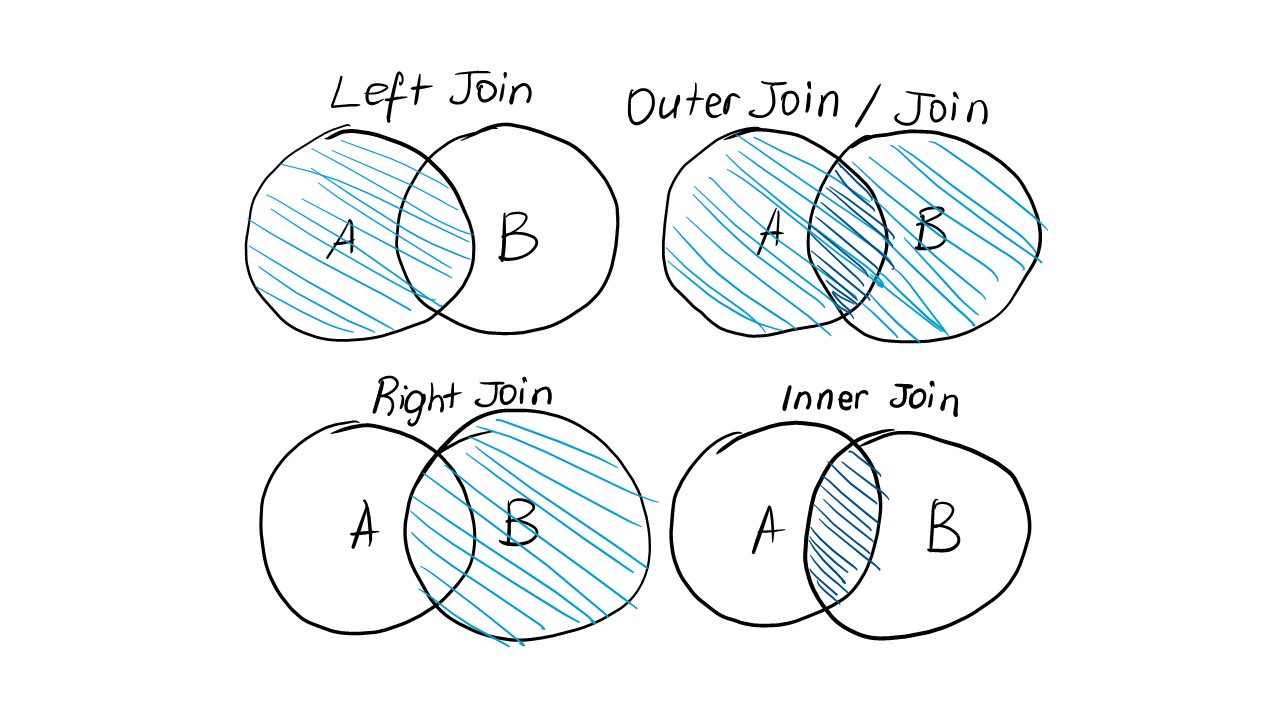 Left Join
Outer Join / Join
A
B
A
B
Right Join
Inner Join
A
B
A
B